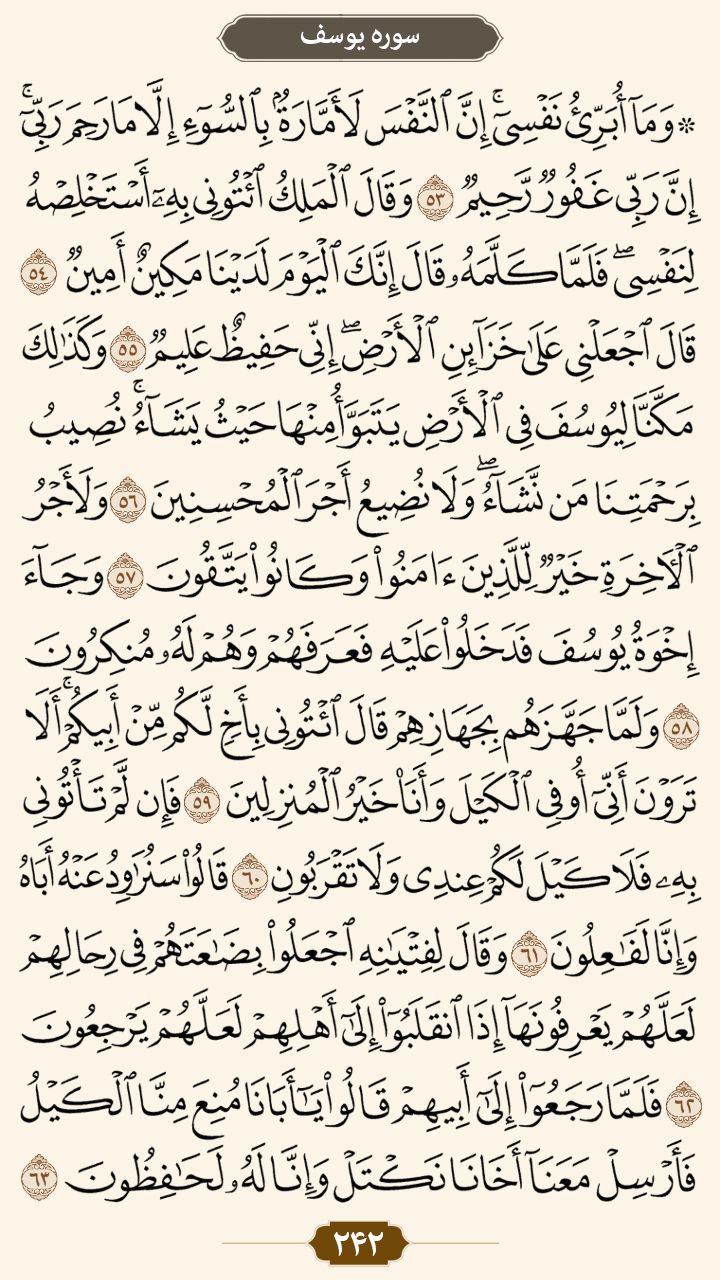 سوره یوسف
۞ وَمَآ أُبَرِّئُ نَفۡسِيٓۚ إِنَّ ٱلنَّفۡسَ لَأَمَّارَةُۢ بِٱلسُّوٓءِ إِلَّا مَا رَحِمَ رَبِّيٓۚ
إِنَّ رَبِّي غَفُورٞ رَّحِيمٞ ٥٣ وَقَالَ ٱلۡمَلِكُ ٱئۡتُونِي بِهِۦٓ أَسۡتَخۡلِصۡهُ
لِنَفۡسِيۖ فَلَمَّا كَلَّمَهُۥ قَالَ إِنَّكَ ٱلۡيَوۡمَ لَدَيۡنَا مَكِينٌ أَمِينٞ ٥٤
قَالَ ٱجۡعَلۡنِي عَلَىٰ خَزَآئِنِ ٱلۡأَرۡضِۖ إِنِّي حَفِيظٌ عَلِيمٞ ٥٥ وَكَذَٰلِكَ
مَكَّنَّا لِيُوسُفَ فِي ٱلۡأَرۡضِ يَتَبَوَّأُ مِنۡهَا حَيۡثُ يَشَآءُۚ نُصِيبُ
بِرَحۡمَتِنَا مَن نَّشَآءُۖ وَلَا نُضِيعُ أَجۡرَ ٱلۡمُحۡسِنِينَ ٥٦ وَلَأَجۡرُ
ٱلۡأٓخِرَةِ خَيۡرٞ لِّلَّذِينَ ءَامَنُواْ وَكَانُواْ يَتَّقُونَ ٥٧ وَجَآءَ
إِخۡوَةُ يُوسُفَ فَدَخَلُواْ عَلَيۡهِ فَعَرَفَهُمۡ وَهُمۡ لَهُۥ مُنكِرُونَ
٥٨ وَلَمَّا جَهَّزَهُم بِجَهَازِهِمۡ قَالَ ٱئۡتُونِي بِأَخٖ لَّكُم مِّنۡ أَبِيكُمۡۚ أَلَا
تَرَوۡنَ أَنِّيٓ أُوفِي ٱلۡكَيۡلَ وَأَنَا۠ خَيۡرُ ٱلۡمُنزِلِينَ ٥٩ فَإِن لَّمۡ تَأۡتُونِي
بِهِۦ فَلَا كَيۡلَ لَكُمۡ عِندِي وَلَا تَقۡرَبُونِ ٦٠ قَالُواْ سَنُرَٰوِدُ عَنۡهُ أَبَاهُ
وَإِنَّا لَفَٰعِلُونَ ٦١ وَقَالَ لِفِتۡيَٰنِهِ ٱجۡعَلُواْ بِضَٰعَتَهُمۡ فِي رِحَالِهِمۡ
لَعَلَّهُمۡ يَعۡرِفُونَهَآ إِذَا ٱنقَلَبُوٓاْ إِلَىٰٓ أَهۡلِهِمۡ لَعَلَّهُمۡ يَرۡجِعُونَ
٦٢ فَلَمَّا رَجَعُوٓاْ إِلَىٰٓ أَبِيهِمۡ قَالُواْ يَٰٓأَبَانَا مُنِعَ مِنَّا ٱلۡكَيۡلُ
فَأَرۡسِلۡ مَعَنَآ أَخَانَا نَكۡتَلۡ وَإِنَّا لَهُۥ لَحَٰفِظُونَ ٦٣
۲۴۲